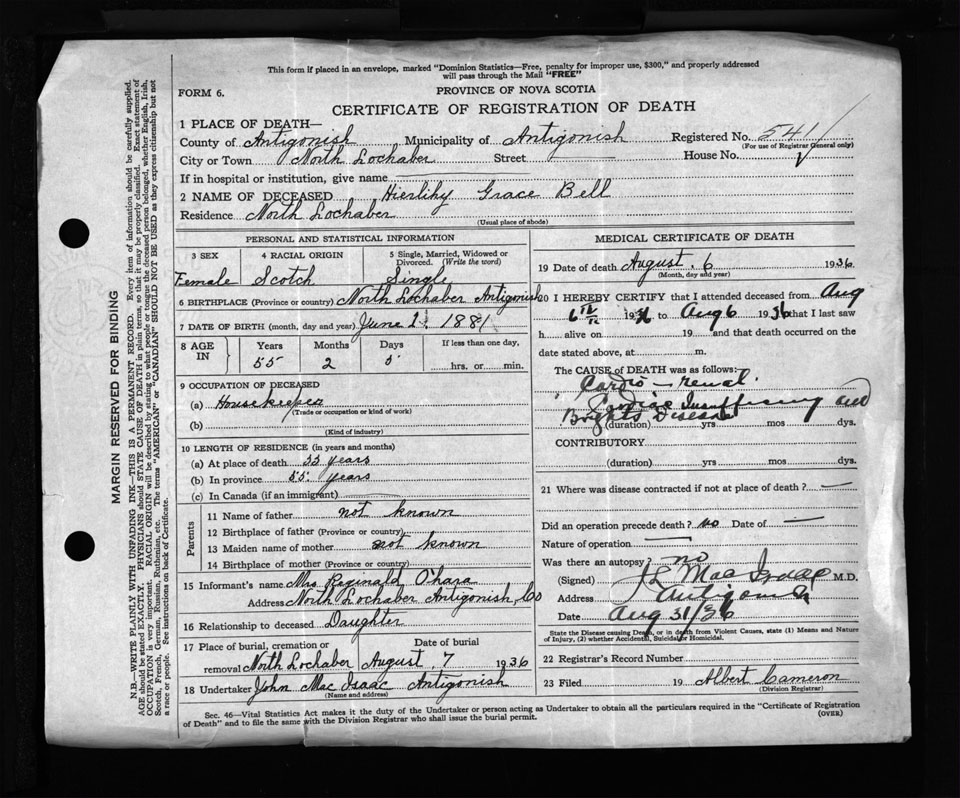 This form if placed in an envelope, marked "Dominion Statistics—Free, penalty for improper use, $300," and properly addressed
will pass through the Mail "FREE"
FORM 6.
PROVINCE OF NOVA SCOTIA
CERTIFICATE OF REGISTRATION OF DEATH
1 PLACE OF DEATH—
County of Antigonish Municipality of Antigonish Registered No. 5411
(For use of Registrar General only)
City or Town North Lochaber Street House No.
If in hospital or institution, give name
2 NAME OF DECEASED Hierlihy Grace Bell
Residence North Lochaber
(Usual place of abode)
PERSONAL AND STATISTICAL INFORMATION
3 SEX 4 RACIAL ORIGIN 5 Single, Married, Widowed or Divorced. (Write the word)
Female Scotch Single
6 BIRTHPLACE (Province or country) North Lochaber Antigonish
7 DATE OF BIRTH (month, day and year) June 2. 1881
8 AGE IN Years Months Days If less than one day,
55 2 hrs. or min.
9 OCCUPATION OF DECEASED
(a) Housekeeper
(Trade or occupation or kind of work)
(b)
(Kind of industry)
10 LENGTH OF RESIDENCE (in years and months)
(a) At place of death 55 years
(b) In province 55 years
(c) In Canada (if an immigrant)
Parents
11 Name of father not known
12 Birthplace of father (Province or country)
13 Maiden name of mother not known
14 Birthplace of mother (Province or country)
15 Informant's name Mrs Reginald O'hara
Address North Lochaber Antigonish, Co
16 Relationship to deceased Daughter
17 Place of burial, cremation or removal Date of burial
North Lochaber August, 7 1936
18 Undertaker John Mac Isaac Antigonish
(Name and address)
MEDICAL CERTIFICATE OF DEATH
19 Date of death August, 6 1936
(Month, day and year)
20 I HEREBY CERTIFY that I attended deceased from Aug
6th 1936 to Aug 6 1936 that I last saw
h alive on 19 and that death occurred on the
date stated above, at m.
The CAUSE OF DEATH was as follows:
Cardio-renal
Cardiac Insufficiency and
Brights Disease
(duration) yrs mos dys.
CONTRIBUTORY
(duration) yrs mos dys.
21 Where was disease contracted if not at place of death? —
Did an operation precede death? no Date of —
Nature of operation —
Was there an autopsy no
(Signed) J L Mac Isaac M.D.
Address Antigonish
Date Aug 31/36
State the Disease causing Death, or in death from Violent Causes, state (1) Means and Nature
of Injury, (2) whether Accidental, Suicidal or Homicidal.
22 Registrar's Record Number
23 Filed 19 Albert Cameron
(Division Registrar)
Sec. 46—Vital Statistics Act makes it the duty of the Undertaker or person acting as Undertaker to obtain all the particulars required in the "Certificate of Registration
of Death" and to file the same with the Division Registrar who shall issue the burial permit.
(OVER)
MARGIN RESERVED FOR BINDING
N.B.—WRITE PLAINLY WITH UNFADING INK—THIS IS A PERMANENT RECORD. Every item of information should be carefully supplied.
AGE should be stated EXACTLY. PHYSICIANS should STATE CAUSE OF DEATH in plain terms, so that it may be properly classified. Exact statement of
OCCUPATION is very important. RACIAL ORIGIN will be described by stating to what people or tongue the deceased person belonged, whether English, Irish,
Scotch, French, German, Russian, Ruthenian, etc. The terms "AMERICAN" or "CANADIAN" SHOULD NOT BE USED as they express citizenship but not
a race or people. See instructions on back of Certificate.